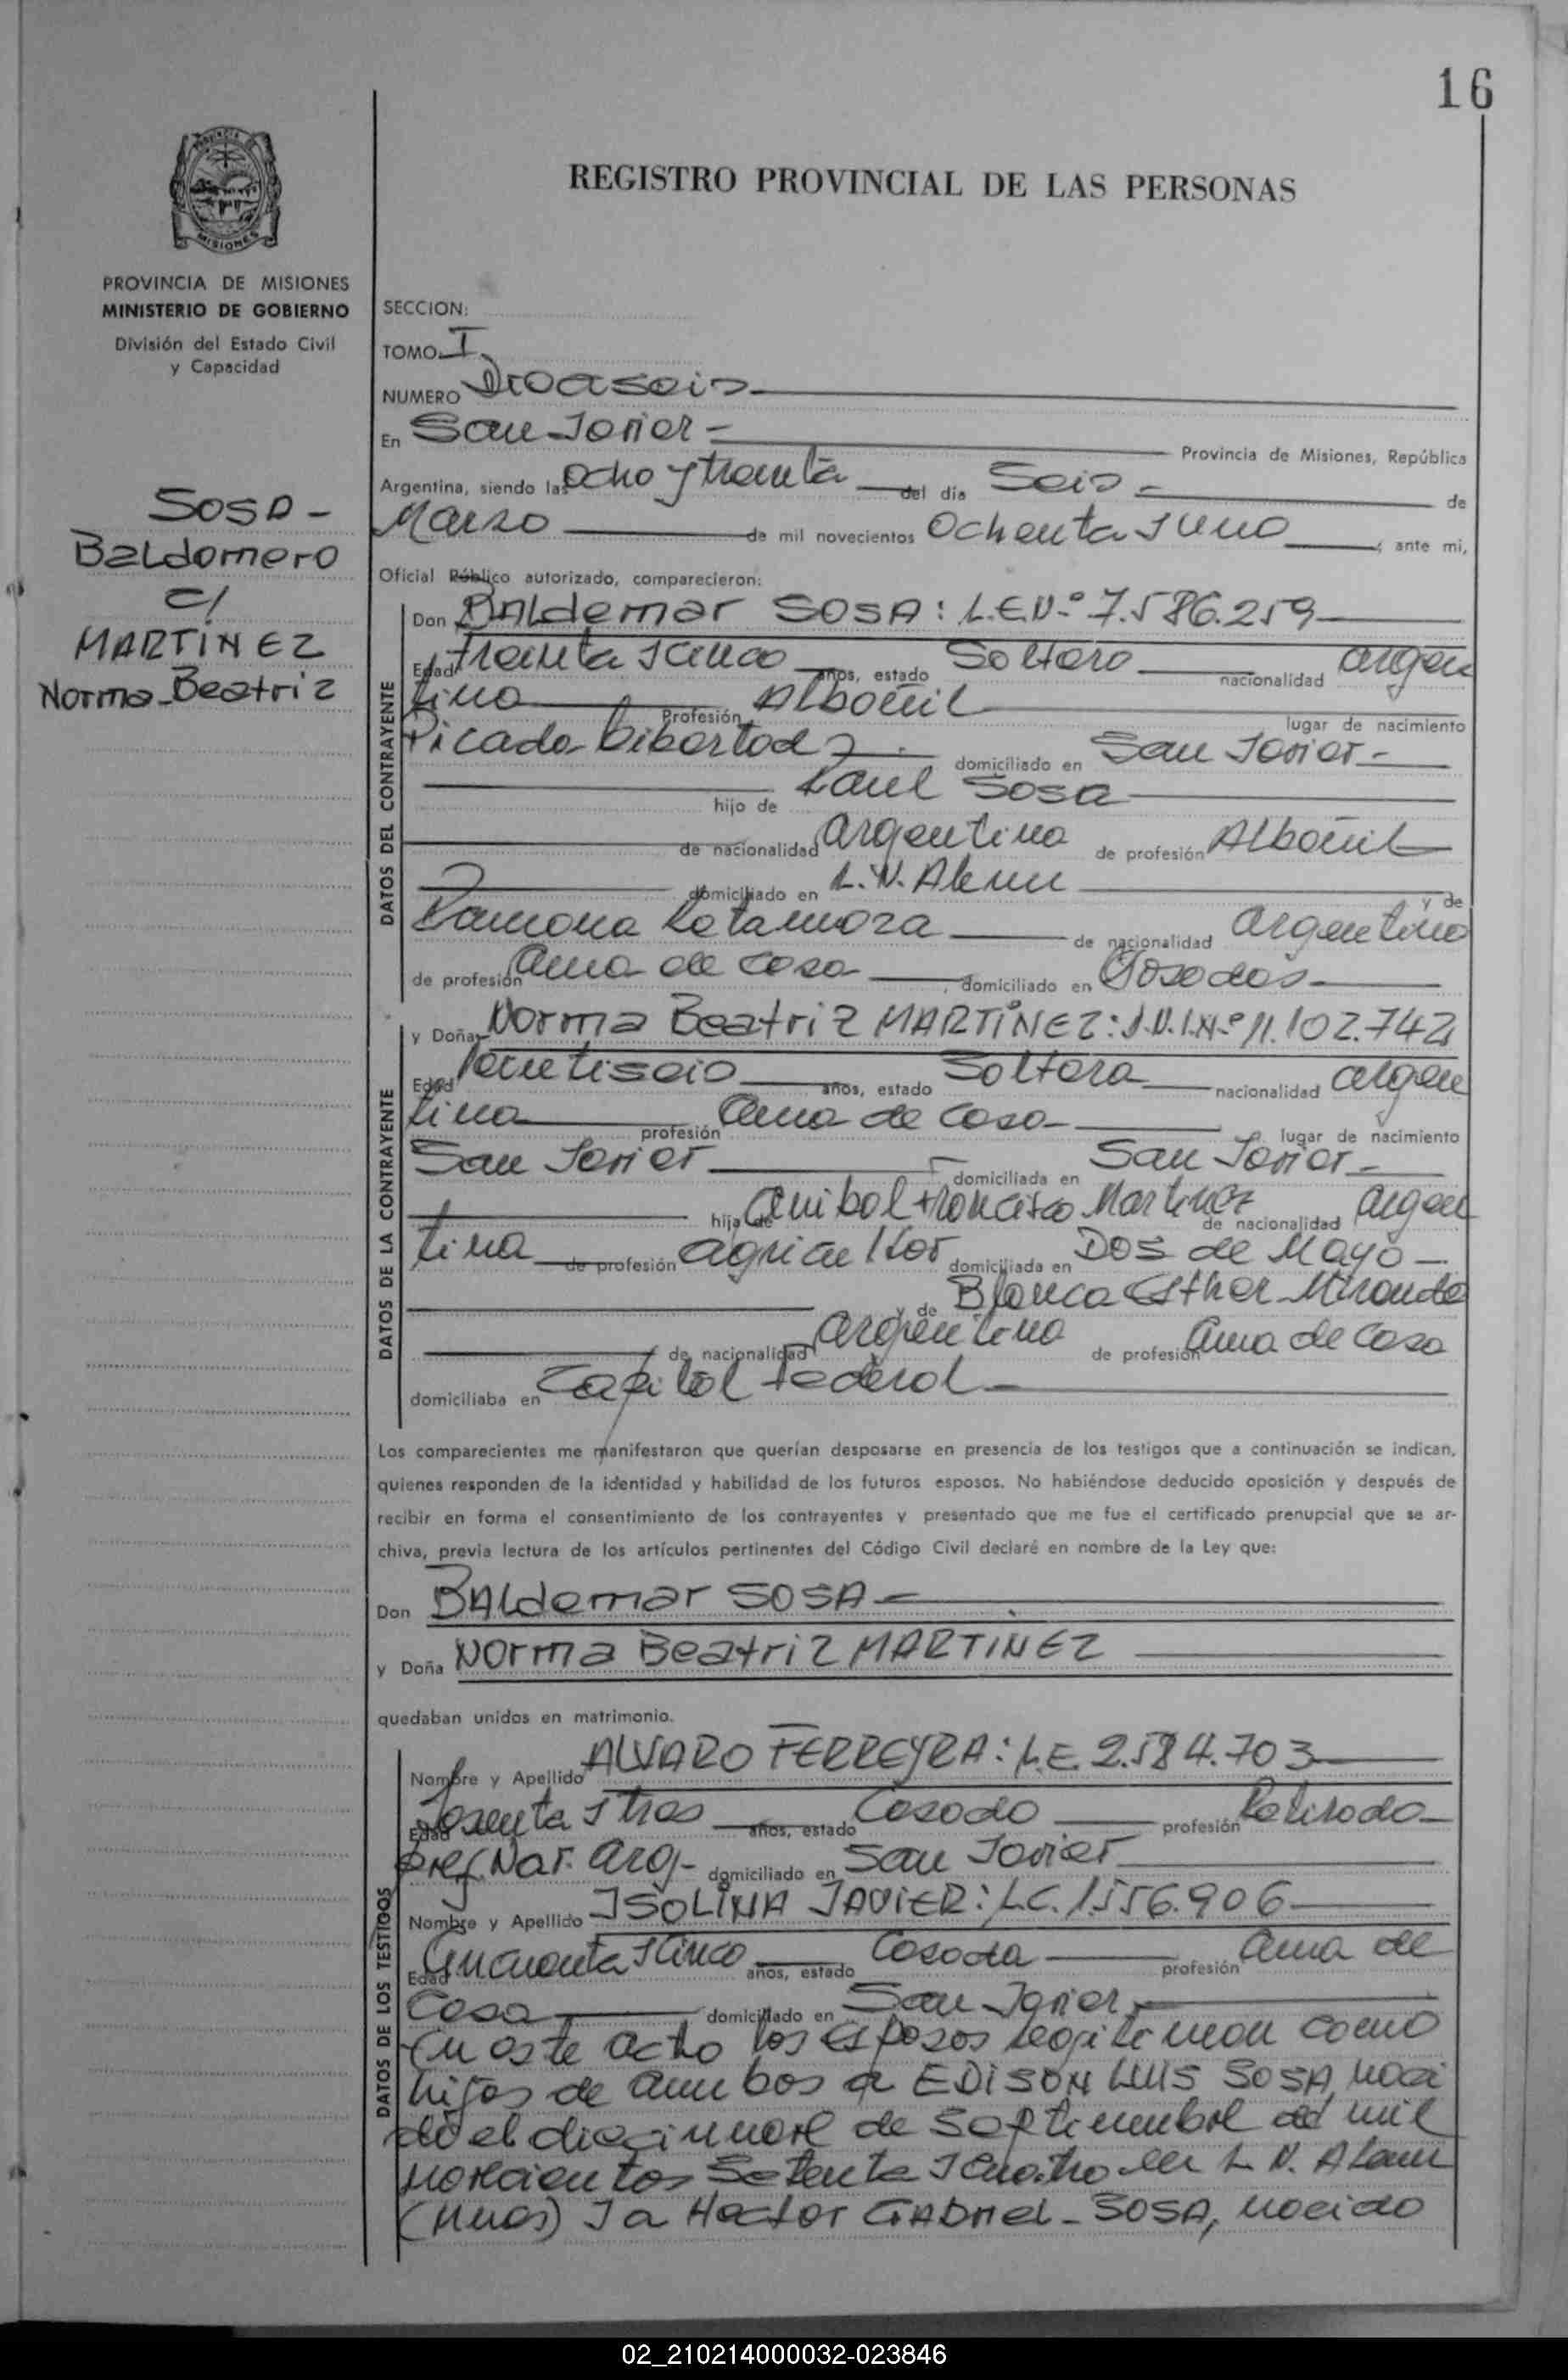 16
REGISTRO PROVINCIAL DE LAS PERSONAS
MISIONES
PROVINCIA DE MISIONES
MINISTERIO DE GOBIERNO
División del Estado Civil
y Capacidad
SOSA -
Baldomero
c/
MARTINEZ
Norma Beatriz
SECCION:
TOMO I
NUMERO Dieciseis
En San Javier - Provincia de Misiones, República
Argentina, siendo las ocho y treinta del dia Seis - de
Marzo de mil novecientos Ochenta y uno ; ante mi,
Oficial Público autorizado, comparecieron:
DATOS DEL CONTRAYENTE
Don BALdemar SOSA: L.E.Nº 7.586.259
Edad treinta y cinco años, estado Soltero nacionalidad argen
tina Profesión Albañil lugar de nacimiento
Picada Libertad domiciliado en San Javier -
hijo de Raul Sosa
de nacionalidad argentina de profesión Albañil
domiciliado en L.N. Alem y de
Ramona de nacionalidad argentina
de profesión ama de casa , domiciliado en Posadas
DATOS DE LA CONTRAYENTE
y Doña Norma Beatriz MARTINEZ: D.N.I.Nº 11.102.742
Edad Veintiseis años, estado Soltera nacionalidad argen
tina profesión ama de casa lugar de nacimiento
San Javier domiciliada en San Javier -
hija de Anibal Francisco Martinez de nacionalidad argen
tina de profesión agricultor domiciliada en Dos de Mayo -
y de Blanca Esther Miranda
de nacionalidad argentina de profesión ama de casa
domiciliaba en Capital Federal -
Los comparecientes me manifestaron que querían desposarse en presencia de los testigos que a continuación se indican,
quienes responden de la identidad y habilidad de los futuros esposos. No habiéndose deducido oposición y después de
recibir en forma el consentimiento de los contrayentes y presentado que me fue el certificado prenupcial que se ar-
chiva, previa lectura de los artículos pertinentes del Código Civil declaré en nombre de la Ley que:
Don BALdemar SOSA -
y Doña Norma Beatriz MARTINEZ
quedaban unidos en matrimonio.
DATOS DE LOS TESTIGOS
Nombre y Apellido ALVARO FERREYRA: L.E. 2.584.703
Edad Sesenta y tres años, estado Casado profesión Retirado -
Pref. Nav. Arg. - domiciliado en San Javier
Nombre y Apellido ISOLINA JAVIER: L.C. 1.556.906
Edad Cincuenta y cinco años, estado Casada profesión ama de
casa domiciliado en San Javier -
En este acto los esposos legitiman como
hijos de ambos a EDISON LUIS SOSA, naci
do el diecinueve de Septiembre de mil
novecientos Setenta y cuatro en L N. Alem
(Mnes) y a Hector GABriel - SOSA, nacido
02_210214000032-023846